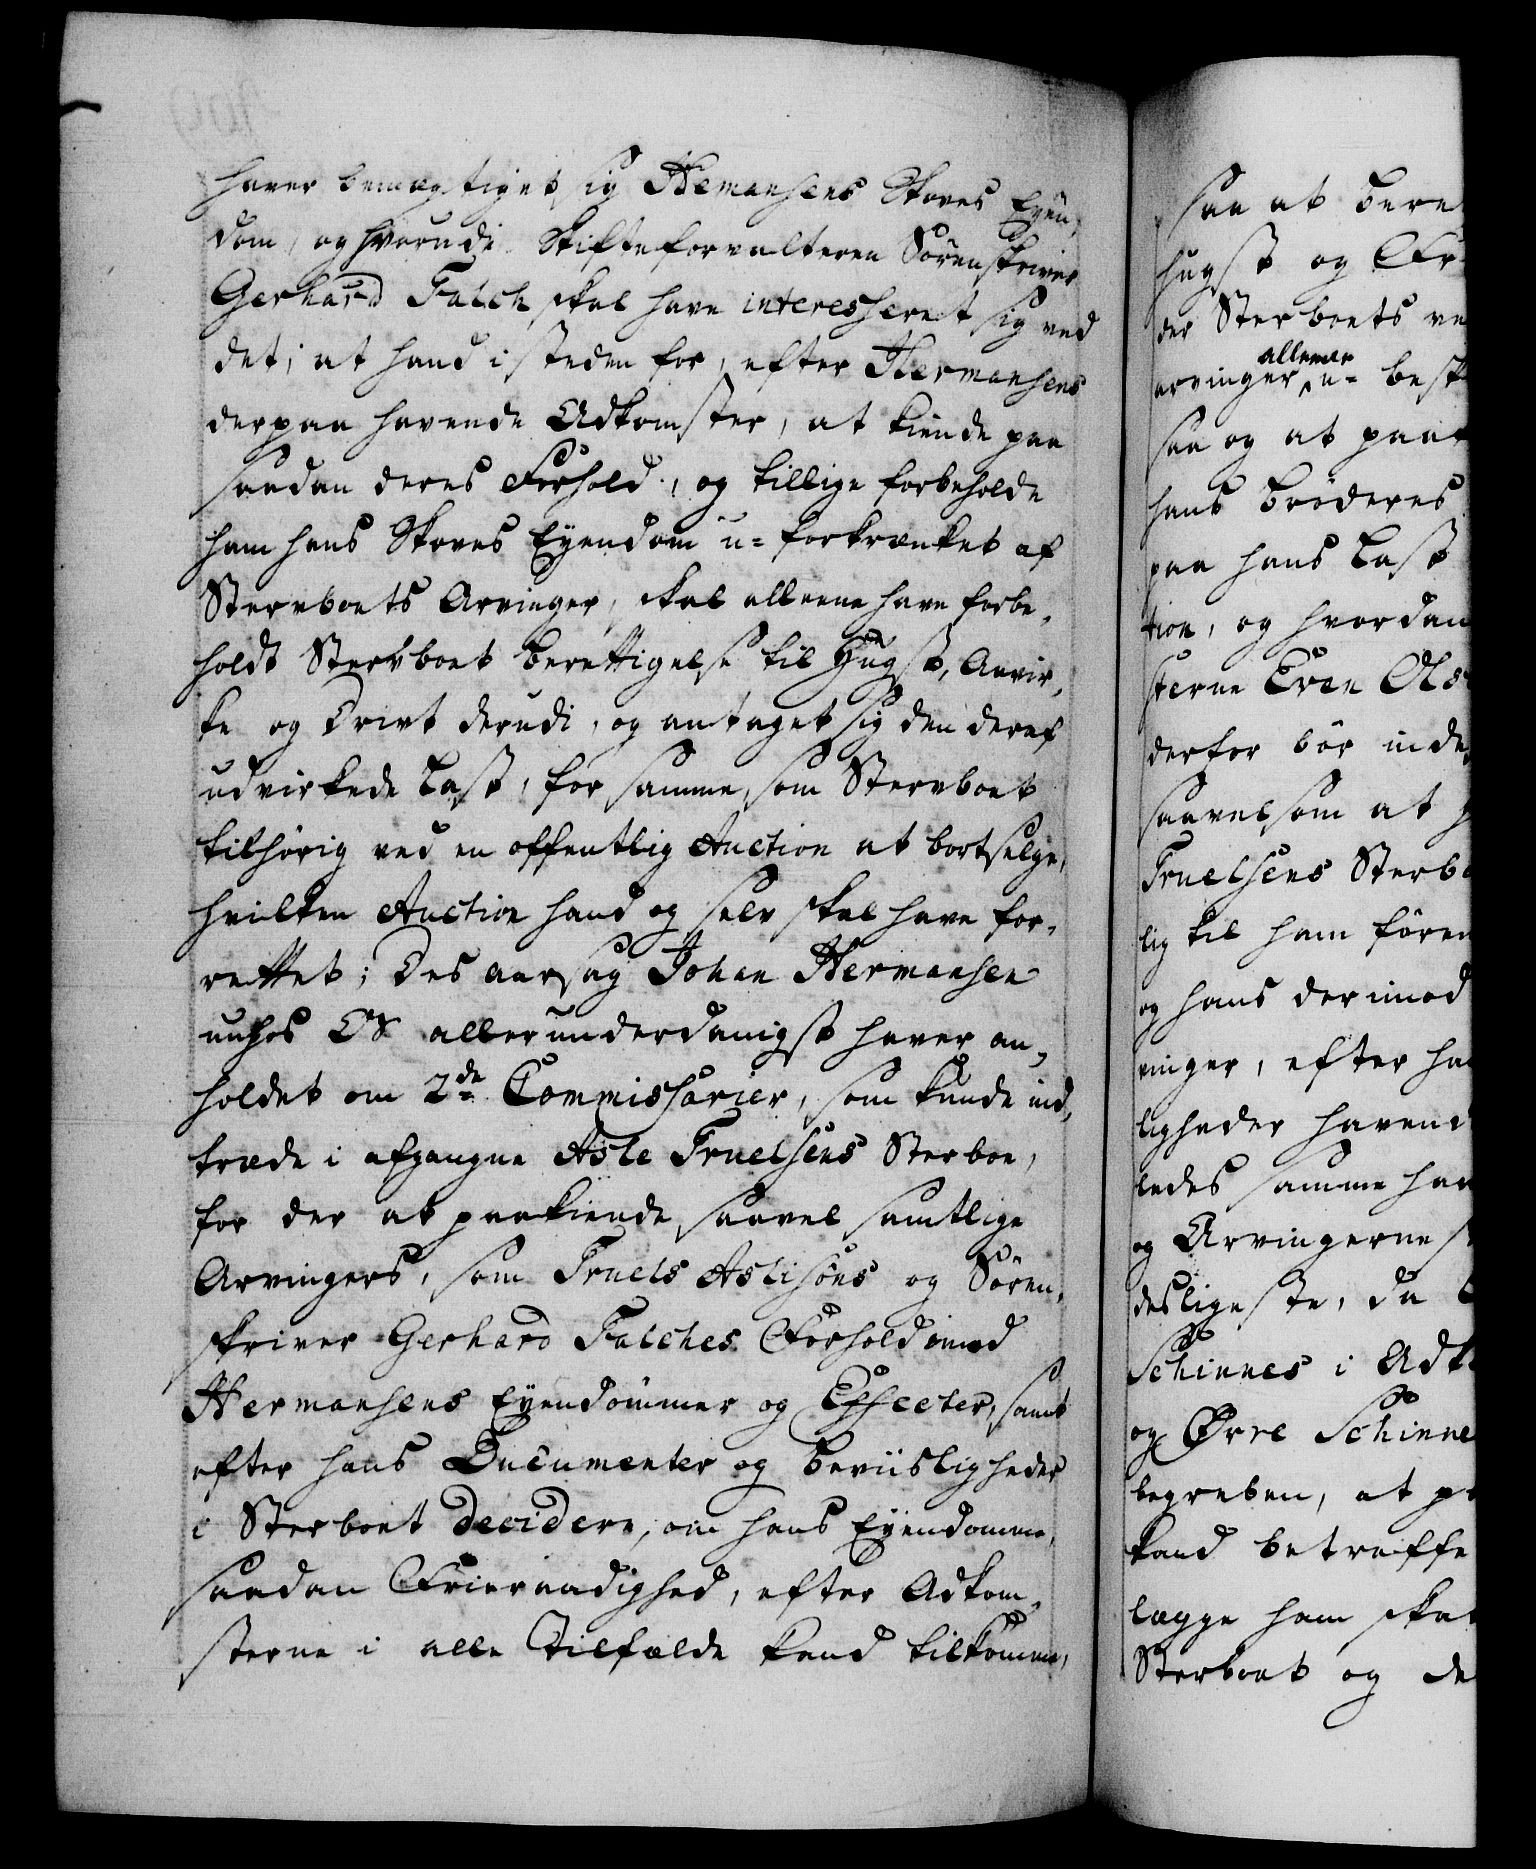 haver bemægtiget sig Hermansens Skoves Eyen-
dom, og hvorudi Skifteforvalteren Sorenskriver
Gerhard Falch skal have interesseret sig ved
det, at hand i steden for, efter Hermansens
derpaa havende Adkomster, at kiende paa
saadan deres Forhold, og tillige forbeholde
ham hans Skoves Eyendom u-forkrænket af
Stervboets Arvinger, skal alleene have forbe-
holdt Stervboet berettigelse til Hugst, Anvir-
ke og Drivt derudi, og antaget sig den deraf
udvirkede Last, for samme, som Stervboet
tilhørig ved en offentlig Auction at bortselge,
hvilken Auction hand og selv skal have for-
rettet; Des aarsag Johan Hermansen
nu hos Os allerunderdanigst haver an-
holdet om 2de Commissarier, som kunde ind-
træde i afgangne Asle Truelsens Sterboe,
for der at paakiende, saavel samtlige
Arvingers, som Truels Aslisøns og Søren-
skriver Gerhard Falches Forhold imod
Hermansens Eyendommer og Effecter, samt
efter hans Documenter og beviisligheder
i Sterboet decidere, om hans Eyendomme,
saadan Frieraadighed, efter Adkom-
sterne i alle Tilfælde kand tilkomme,
saa at bere
hugst og Fr
der Sterboets ve
allene
arvinger u- besk
saa og at paa
hans brøderes
paa hans Last
tion, og hvordan
sterne Even Ols
derfor bør inde
saavelsom at
Truelsens Sterb
lig til ham føren
og hans derimod
vinger, efter ha
ligheder havend
ledes samme ha
og Arvingerne
desligeste, da
Schinnes i Adk
og Ørre Schinne
begreben, at p
kand betreffe
lægge ham skat
Sterboet og de